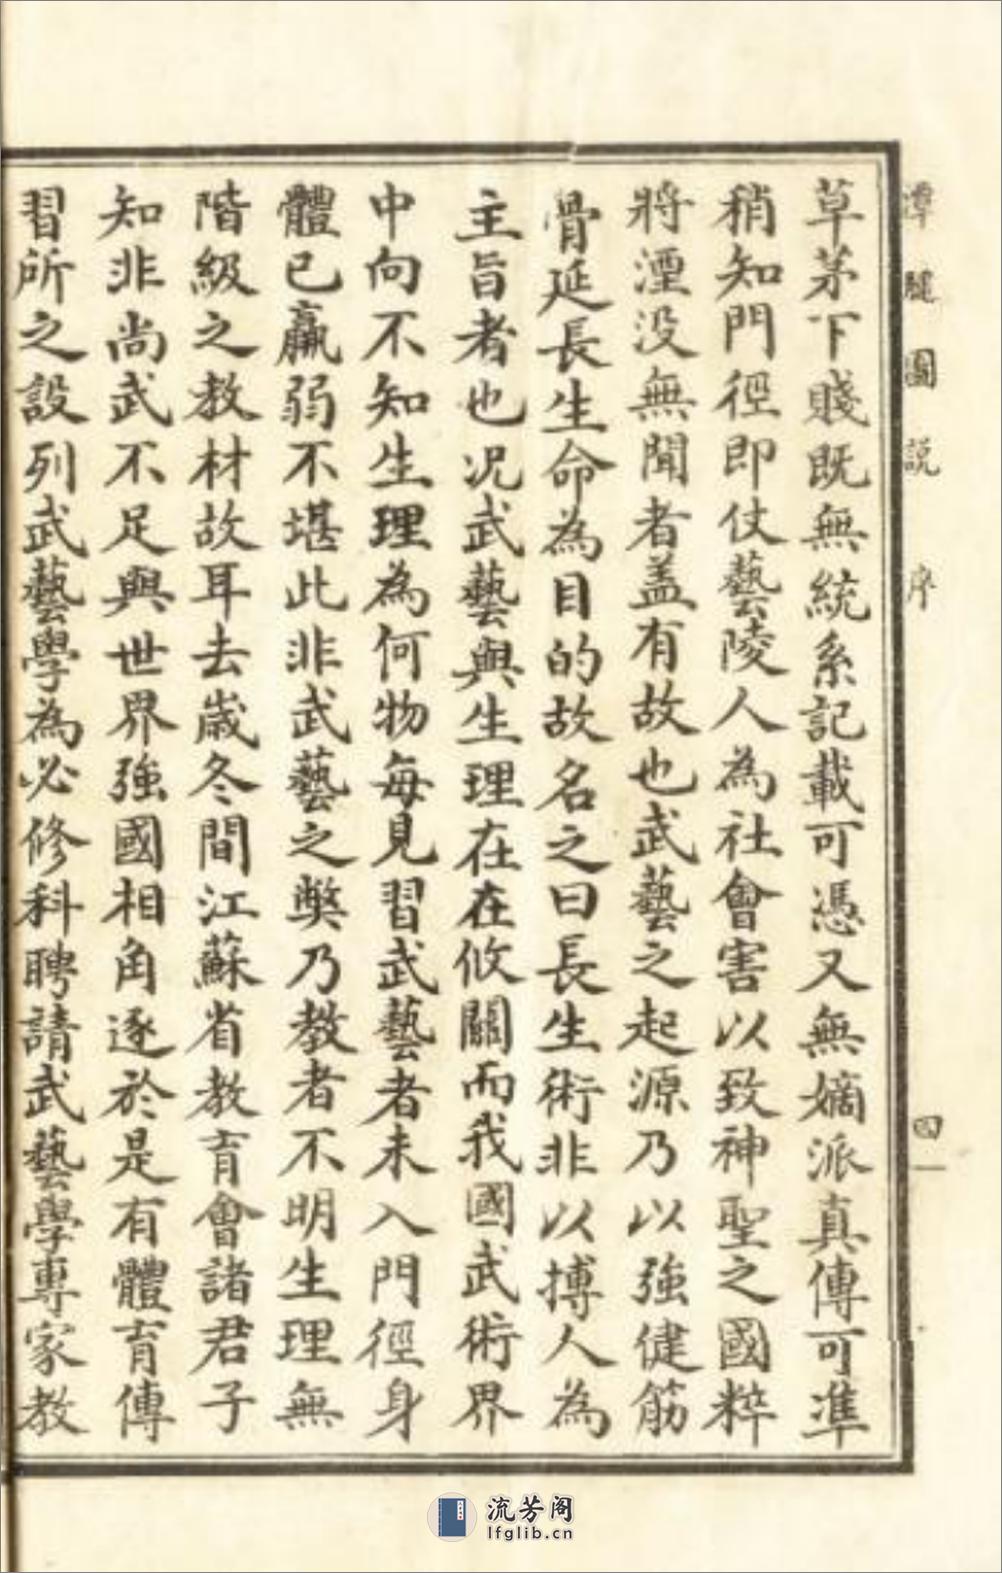 潭腿圖説 序 四
草茅下賤既無統系記載可憑又無嫡派真傳可準
稍知門徑即仗藝陵人為社會害以致神聖之國粹
將湮没無聞者盖有故也武藝之起源乃以強健筋
骨延長生命為目的故名之曰長生術非以搏人為
主旨者也况武藝與生理在在攸關而我國武術界
中向不知生理為何物每見習武藝者未入門徑身
體已羸弱不堪此非武藝之弊乃教者不明生理無
階級之教材故耳去歲冬間江蘇省教育會諸君子
知非尚武不足與世界強國相角逐於是有體育傳
習所之設列武藝學為必修科聘請武藝學專家教
流芳阁
lfglib.cn